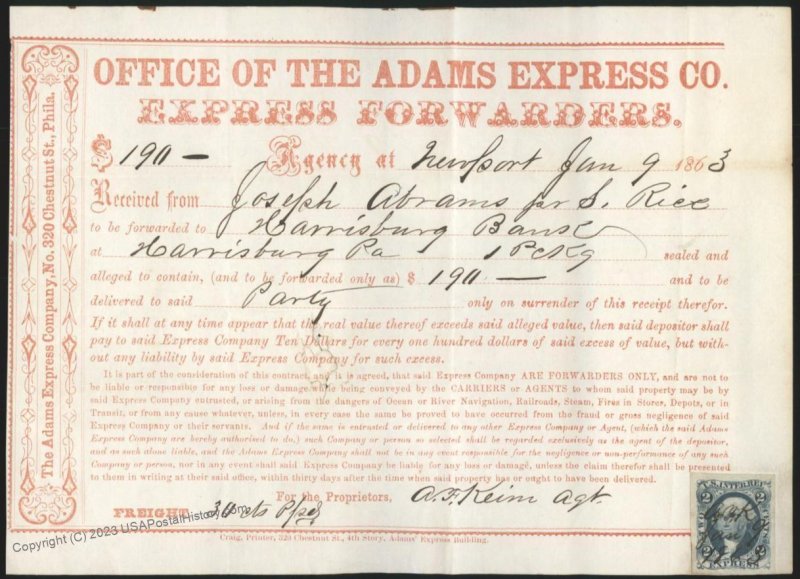 OFFICE OF THE ADAMS EXPRESS CO.
EXPRESS FORWARDERS.
$ 190 — Agency at Newport Jan 9 1863
Received from Joseph Abrams pr S. Rice
to be forwarded to Harrisburg Bank
at Harrisburg Pa 1 Pckg sealed and
alleged to contain, (and to be forwarded only as) $ 190 — and to be
delivered to said Party only on surrender of this receipt therefor.
If it shall at any time appear that the real value thereof exceeds said alleged value, then said depositor shall
pay to said Express Company Ten Dollars for every one hundred dollars of said excess of value, but with-
out any liability by said Express Company for such excess.
It is part of the consideration of this contract, and it is agreed, that said Express Company ARE FORWARDERS ONLY, and are not to
be liable or responsible for any loss or damage while being conveyed by the CARRIERS or AGENTS to whom said property may be by
said Express Company entrusted, or arising from the dangers of Ocean or River Navigation, Railroads, Steam, Fires in Stores, Depots, or in
Transit, or from any cause whatever, unless, in every case the same be proved to have occurred from the fraud or gross negligence of said
Express Company or their servants. And if the same is entrusted or delivered to any other Express Company or Agent, (which the said Adams
Express Company are hereby authorised to do,) such Company or person so selected shall be regarded exclusively as the agent of the depositor,
and as such alone liable, and the Adams Express Company shall not be in any event responsible for the negligence or non-performance of any such
Company or person, nor in any event shall said Express Company be liable for any loss or damage, unless the claim therefor shall be presented
to them in writing at their said office, within thirty days after the time when said property has or ought to have been delivered.
For the Proprietors, A. F. Keim Agt.
FREIGHT 30 cts Ppd
Craig, Printer, 320 Chestnut St., 4th Story, Adams' Express Building.
The Adams Express Company, No. 320 Chestnut St., Phila.
U.S. INTER REV
2 2
Jan 9
2 2
EXPRESS
Copyright (C) 2023 USAPostalHistory.com